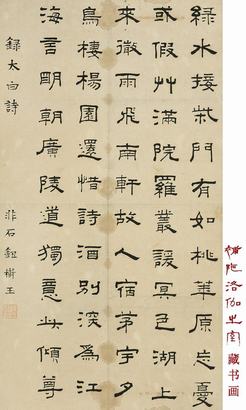 綠水接柴門有如桃華原忘憂
或假艸滿院羅叢諼冥色湖上
來微雨飛南軒故人宿茅宇夕
鳥棲楊園還惜詩酒別深為江
海言朙朝廣陵道獨憶此傾尊
錄太白詩
非石鈕樹玉
洛伽之室藏书画